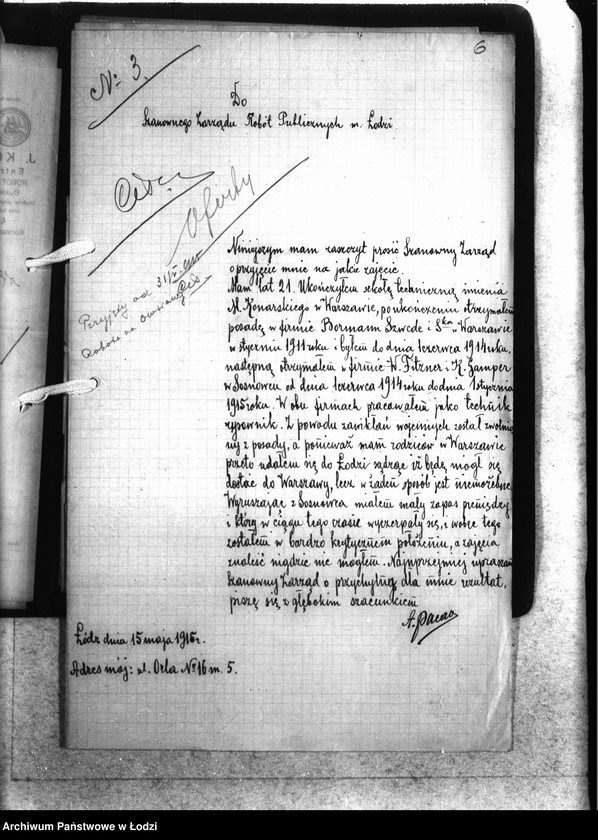 6
№ 3.
Do
Szanownego Zarządu Robót Publicznych m. Łodzi.
Oferty
Przyjęty od 31/V
Niniejszym mam zaszczyt prosić Szanowny Zarząd
o przyjęcie mnie na jakie zajęcie.
Mam lat 21. Ukończyłem szkołę techniczną imienia
M. Konarskiego w Warszawie, po ukończeniu otrzymałem
posadę w firmie Bormann Szwede i Ska w Warszawie
w styczniu 1911 roku i byłem do dnia 1 czerwca 1914 roku,
następną otrzymałem w firmie W. Fitzner i K. Gamper
w Sosnowcu od dnia 1 czerwca 1914 roku do dnia 1 stycznia
1915 roku. W obu firmach pracowałem jako technik
rysownik. Z powodu zawikłań wojennych został zwolnio
ny z posady, a ponieważ mam rodziców w Warszawie
przeto udałem się do Łodzi sądząc iż będę mógł się
dostać do Warszawy, lecz w żaden sposób jest niemożebne.
Wyruszając z Sosnowca miałem mały zapas pieniędzy
i który w ciągu tego czasie wyczerpały się, i wobec tego
zostałem w bardzo krytycznem położeniu, a zajęcia
znaleść nigdzie nie mogłem. Najuprzejmiej upraszam
Szanowny Zarząd o przychylny dla mnie rezultat,
piszę się z głębokim szacunkiem
A.
Łódź dnia 15 maja 1915 r.
Adres mój: ul. Orla № 16 m. 5.
Archiwum Państwowe w Łodzi